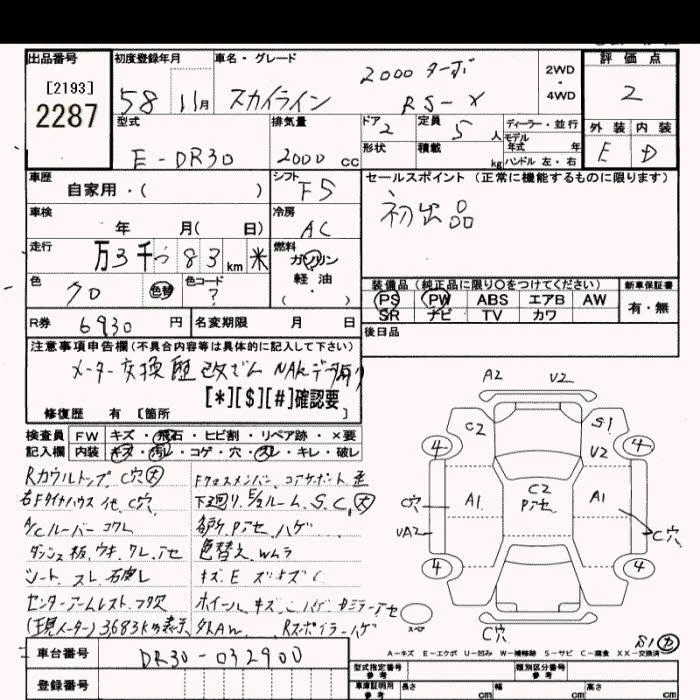 出品番号 初度登録年月 車名・グレード 評価点
[2193] 2000 ターボ 2WD
2287 58 11月 スカイライン RS-X 4WD 2
型式 排気量 ドア 2 定員 5人 ディーラー・並行 外装 内装
E-DR30 2000 cc 形状 積載 kg モデル年式 年 E D
ハンドル 左・右
車歴 自家用・( ) シフト F5 セールスポイント (正常に機能するものに限ります)
初出品
車検 年 月( 日) 冷房 AC
走行 万3千 83 km 米 燃料 ガソリン
軽油
( ・ )
色 クロ 色替 色コード ?
装備品 (純正品に限り○をつけてください) 新車保証書
PS PW ABS エアB AW 有・無
SR ナビ TV カワ
R券 6930 円 名変期限 月 日 後日品
注意事項申告欄 (不具合内容等は具体的に記入して下さい)
メーター交換歴 改ざん
[*][$][#]確認要
修復歴 有 [箇所 ]
検査員 FW キズ・飛石・ヒビ割・リペア跡・×要
記入欄 内装 キズ・汚レ・コゲ・穴・スレ・キレ・破レ
Rカウルトップ C穴大
A/Cルーバー コワレ
ダッシュ板、ウキ、ワレ、アセ
シート スレ
センターアームレスト フタ欠
(現メーター) 3,683km表示
下廻り、E/ルーム S.C.大
各所 Pアセ ハゲ
色替え Wムラ
Rスポイラーハゲ
A2 U2
C2 S1
4 U2 4
C穴 A1 C2 A1
Pアセ
UA2 C穴
4 4
C穴
A-キズ E-エクボ U-凹み W-補修跡 S-サビ C-腐食 XX-交換済
車台番号 DR30-032900
登録番号
型式指定番号 参考 類別区分番号 参考
車庫証明用 参考 長さ cm 幅 cm 高さ cm